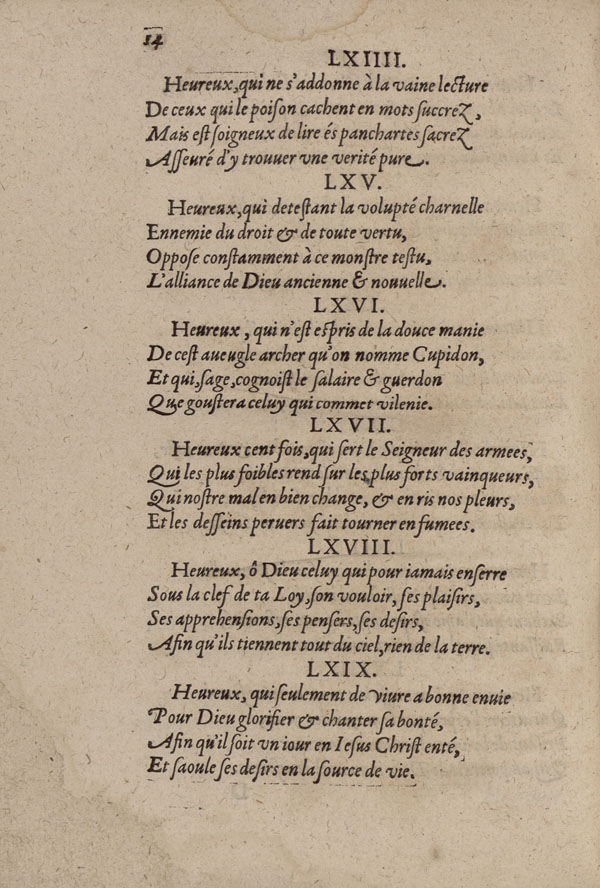 14
LXIIII.
Heureux, qui ne s'addonne à la vaine lecture
De ceux qui le poiſon cachent en mots ſuccrez,
Mais eſt ſoigneux de lire és panchartes ſacrez
Aſſeuré d'y trouuer vne verité pure.
LXV.
Heureux, qui deteſtant la volupté charnelle
Ennemie du droit & de toute vertu,
Oppoſe conſtamment à ce monſtre teſtu,
L'alliance de Dieu ancienne & nouuelle.
LXVI.
Heureux, qui n'eſt eſpris de la douce manie
De ceſt aueugle archer qu'on nomme Cupidon,
Et qui, ſage, cognoiſt le ſalaire & guerdon
Que gouſtera celuy qui commet vilenie.
LXVII.
Heureux cent fois, qui ſert le Seigneur des armees,
Qui les plus foibles rend ſur les plus forts vainqueurs,
Qui noſtre mal en bien change, & en ris nos pleurs,
Et les deſſeins peruers fait tourner en fumees.
LXVIII.
Heureux, ô Dieu celuy qui pour iamais enſerre
Sous la clef de ta Loy, ſon vouloir, ſes plaiſirs,
Ses apprehenſions, ſes penſers, ſes deſirs,
Afin qu'ils tiennent tout du ciel, rien de la terre.
LXIX.
Heureux, qui ſeulement de viure a bonne enuie
Pour Dieu glorifier & chanter ſa bonté,
Afin qu'il ſoit vn iour en Ieſus Chriſt enté,
Et ſaoule ſes deſirs en la ſource de vie.